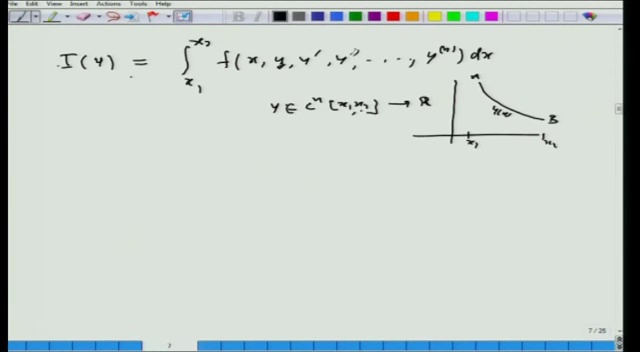 File Edit View Insert Actions Tools Help
I(y) = ∫_{x_1}^{x_2} f(x, y, y', y'', ..., y^{(n)}) dx
y ∈ C^n [x_1, x_2] → R
A
y(x)
B
x_1
x_2
7 / 25
7